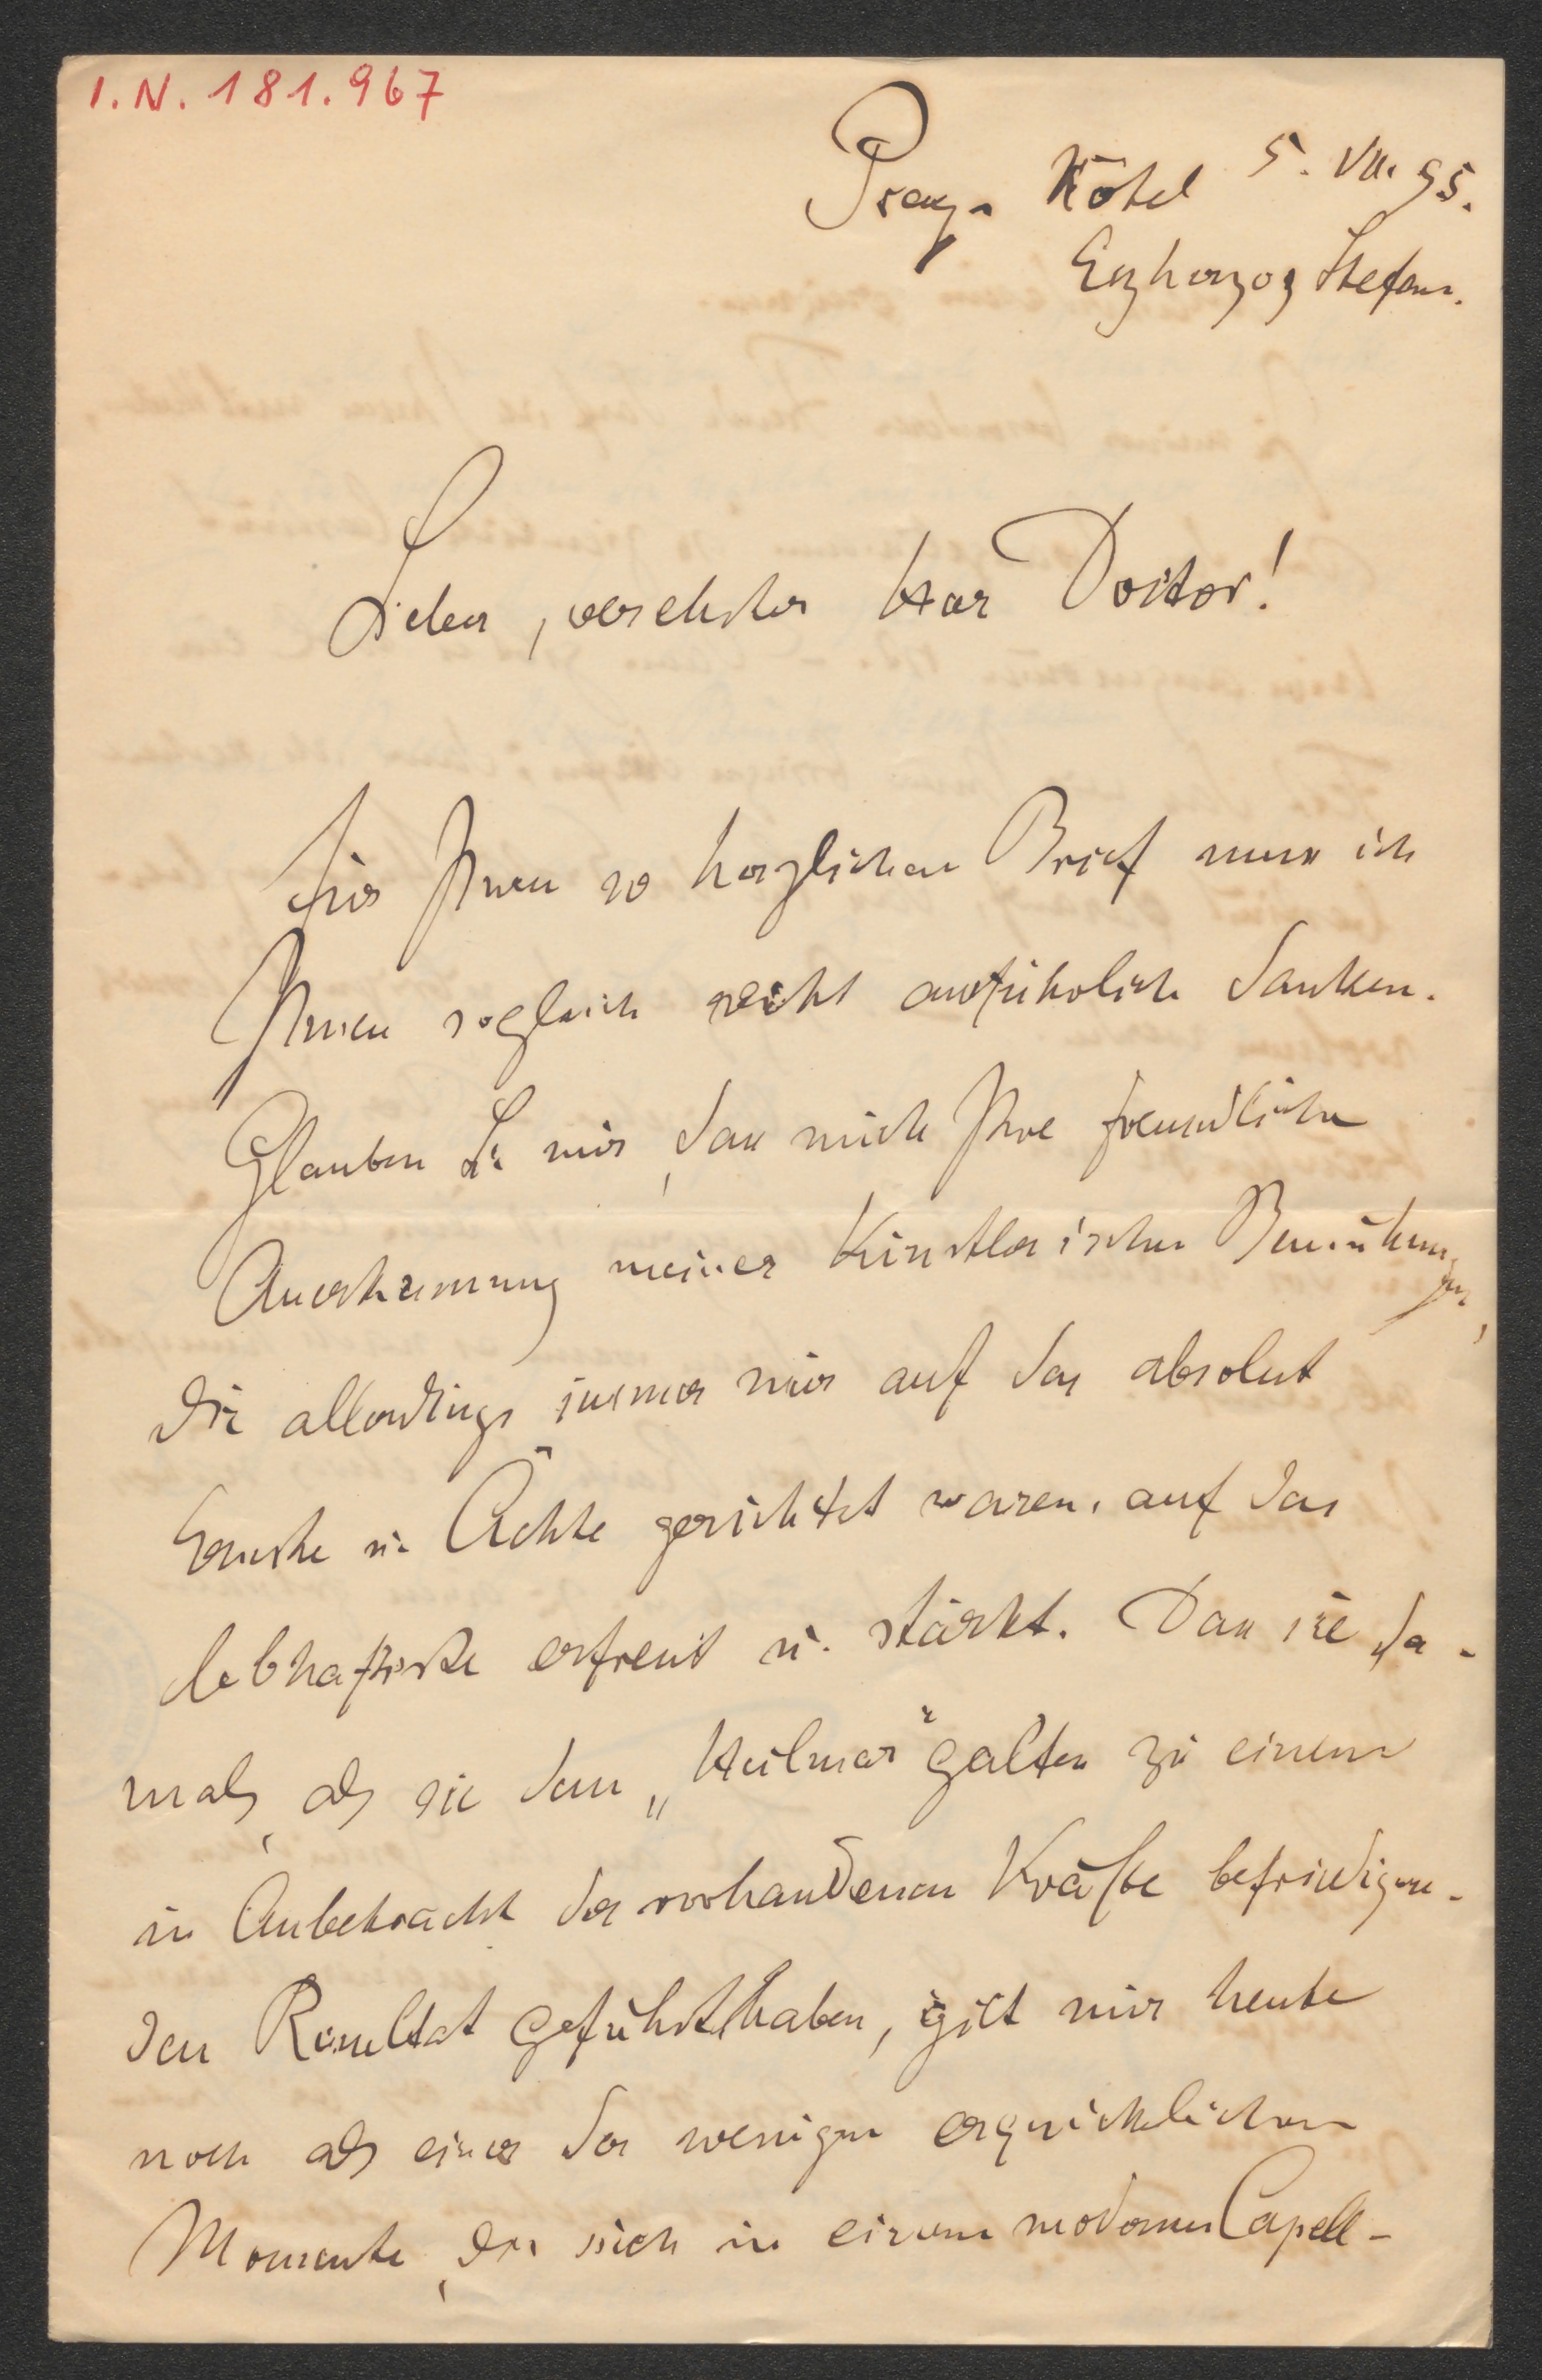 I.N. 181.967
Prag. Hôtel 5. VII. 95.
Erzherzog Stefan.
Lieber, verehrter Herr Doctor!
Für Ihren so herzlichen Brief muss ich
Ihnen sogleich recht ausführlich danken.
Glauben Sie mir, dass mich Ihre freundliche
Anerkennung meiner künstlerischen Bemühungen,
die allerdings immer nur auf das absolut
Ernste u. Ächte gerichtet waren, auf das
lebhafteste erfreut u. stärkt. Dass sie da-
mals, als sie dem „Heilmar" galten zu einem
in Anbetracht der vorhandenen Kräfte befriedigen-
den Resultat geführt haben, gilt mir heute
noch als einer der wenigen erquicklichen
Momente, die sich in einem modernen Capell-